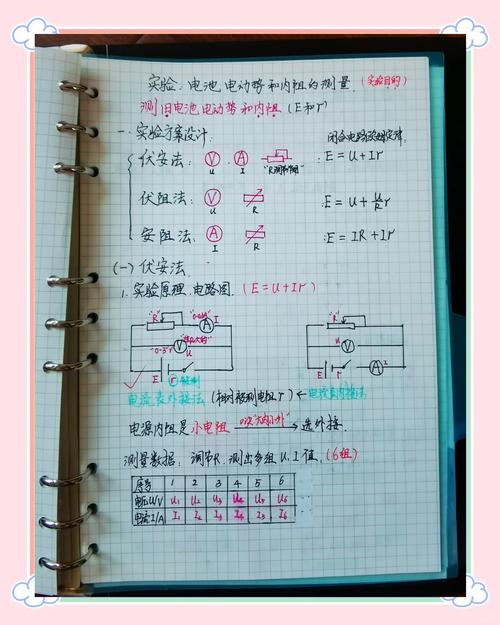 实验:电池电动势和内阻的测量 (实验目的)
测旧电池电动势和内阻 (E和r)
一、实验方案设计: 闭合电路欧姆定律
伏安法: V U A I R : E=U+Ir
伏阻法: V U R : E=U+U/R r
安阻法: A I R : E=IR+Ir
(一) 伏安法.
1. 实验原理、电路图. (E=U+Ir)
"R" A I V U E r
"0-3"V
R A I V U E r
电流表外接法 (相对被测电阻r) ← 电流表内接法
电源内阻是小电阻 → 选外接.
测量数据: 调节R. 测出多组U、I值. (6组)
序号 1 2 3 4 5 6
电压U/V U₁ U₂ U₃ U₄ U₅ U₆
电流I/A I₁ I₂ I₃ I₄ I₅ I₆